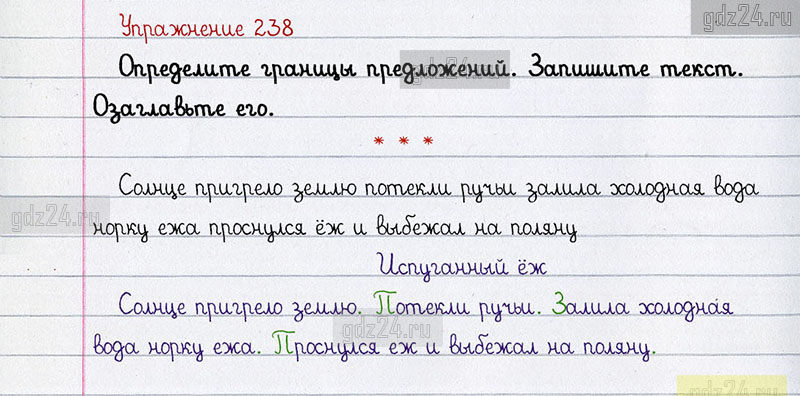 gdz24.ru
Упражнение 238
Определите границы предложений. Запишите текст.
Озаглавьте его.
* * *
Солнце пригрело землю потекли ручьи залила холодная вода
gdz24.ru
норку ежа проснулся ёж и выбежал на поляну
Испуганный ёж
Солнце пригрело землю. Потекли ручьи. Залила холодная
gdz24.ru
вода норку ежа. Проснулся еж и выбежал на поляну.
gdz24.ru